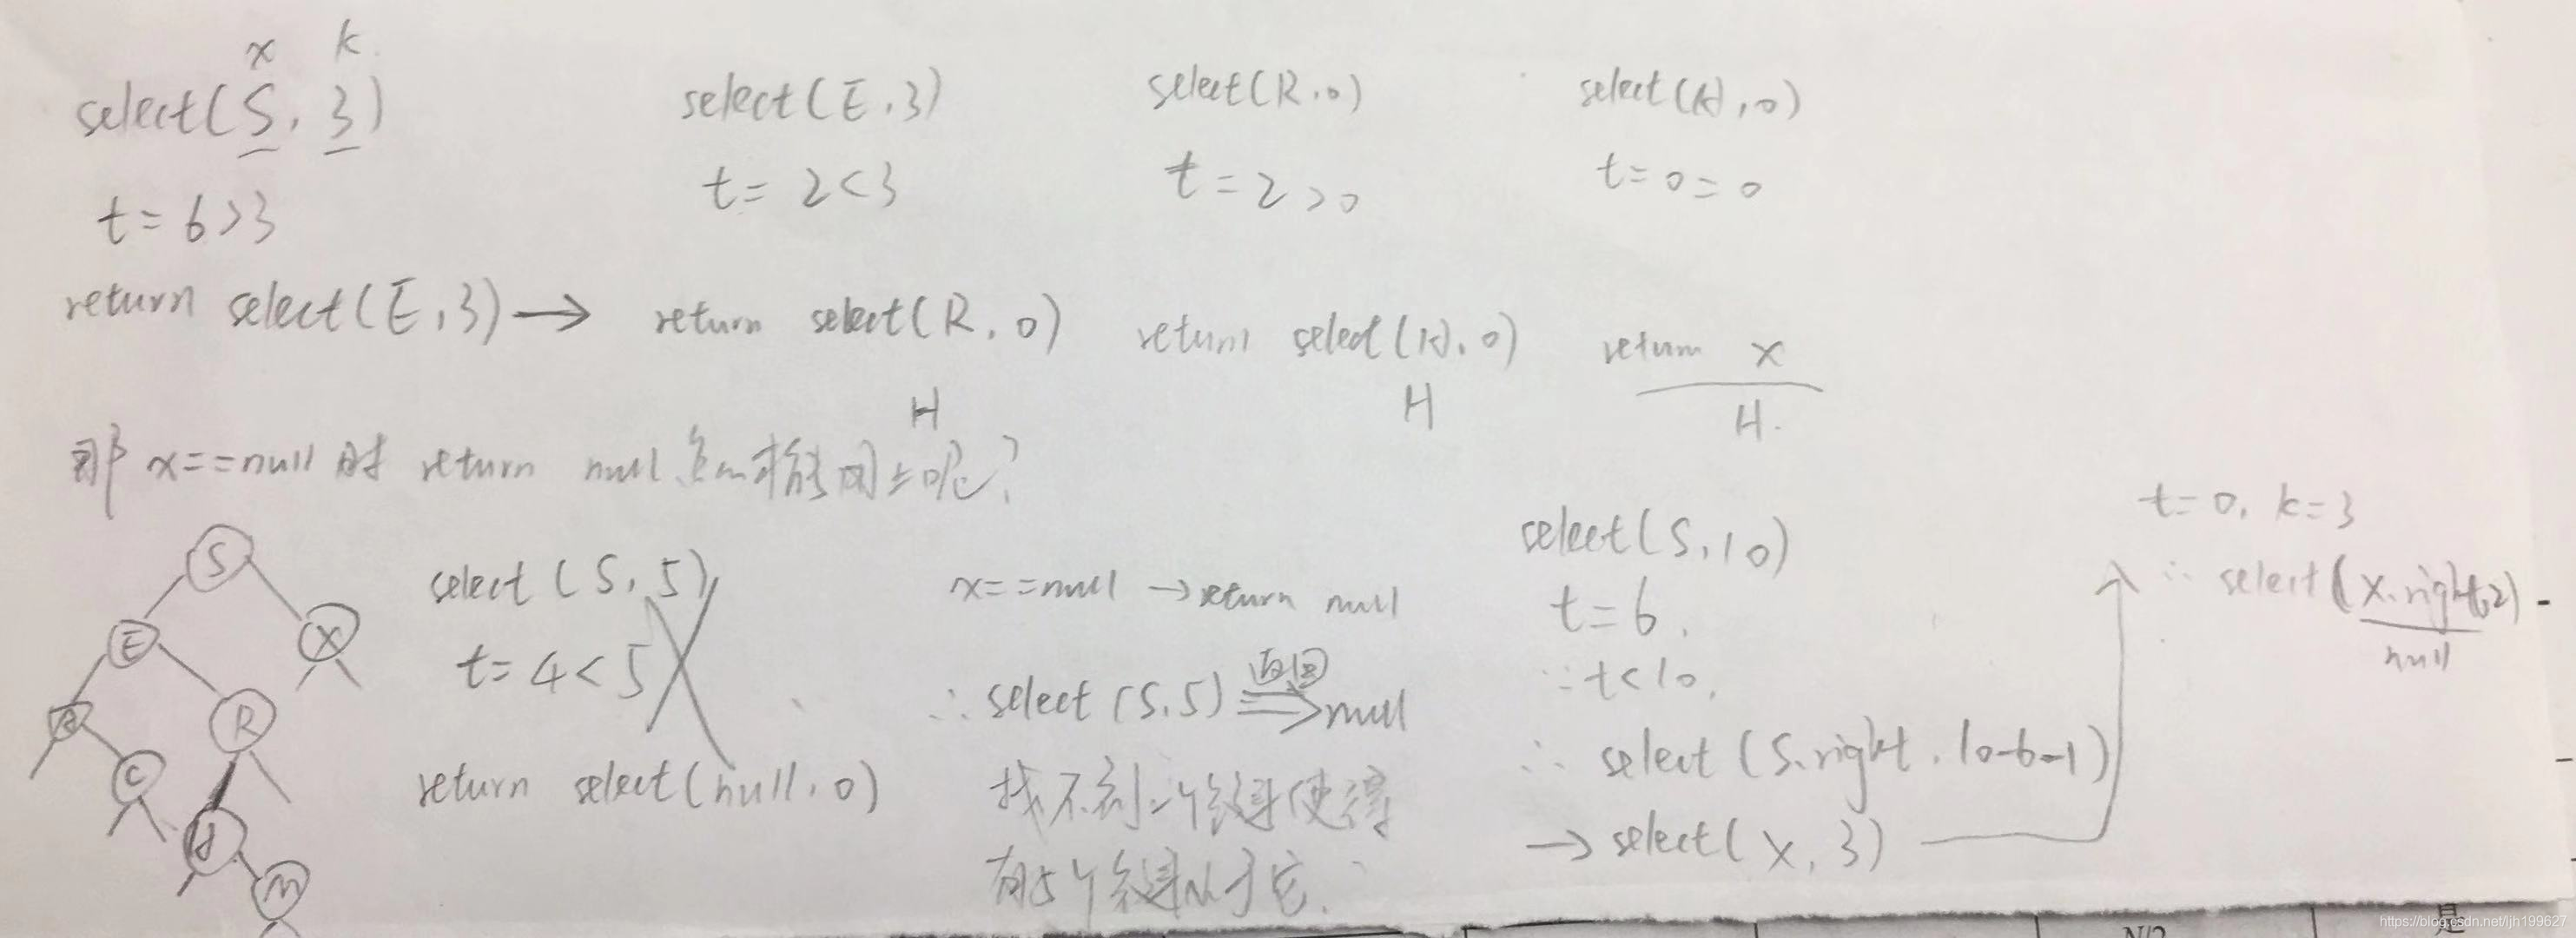 x k.
select(S, 3)
t = 6>3
return select(E,3) →
select(E,3)
t = 2<3
return select(R,0)
H
select(R,0)
t = 2>0
return select(H,0)
H
select(H,0)
t=0=0
return x
H.
那 x==null 时 return null 怎么才能用上呢?
S
E
X
A
R
C
H
M
select (S,5)
t=4<5
return select(null,0)
x==null → return null
∴ select (S,5) 返回 null
找不到一个结点使得
有5个结点小于它.
select(S,10)
t=6.
∵ t<10,
∴ select (S.right, 10-6-1)
→ select(X,3)
t=0, k=3
∴ select(X.right,2)
null
N/2
是
https://blog.csdn.net/ljh199627